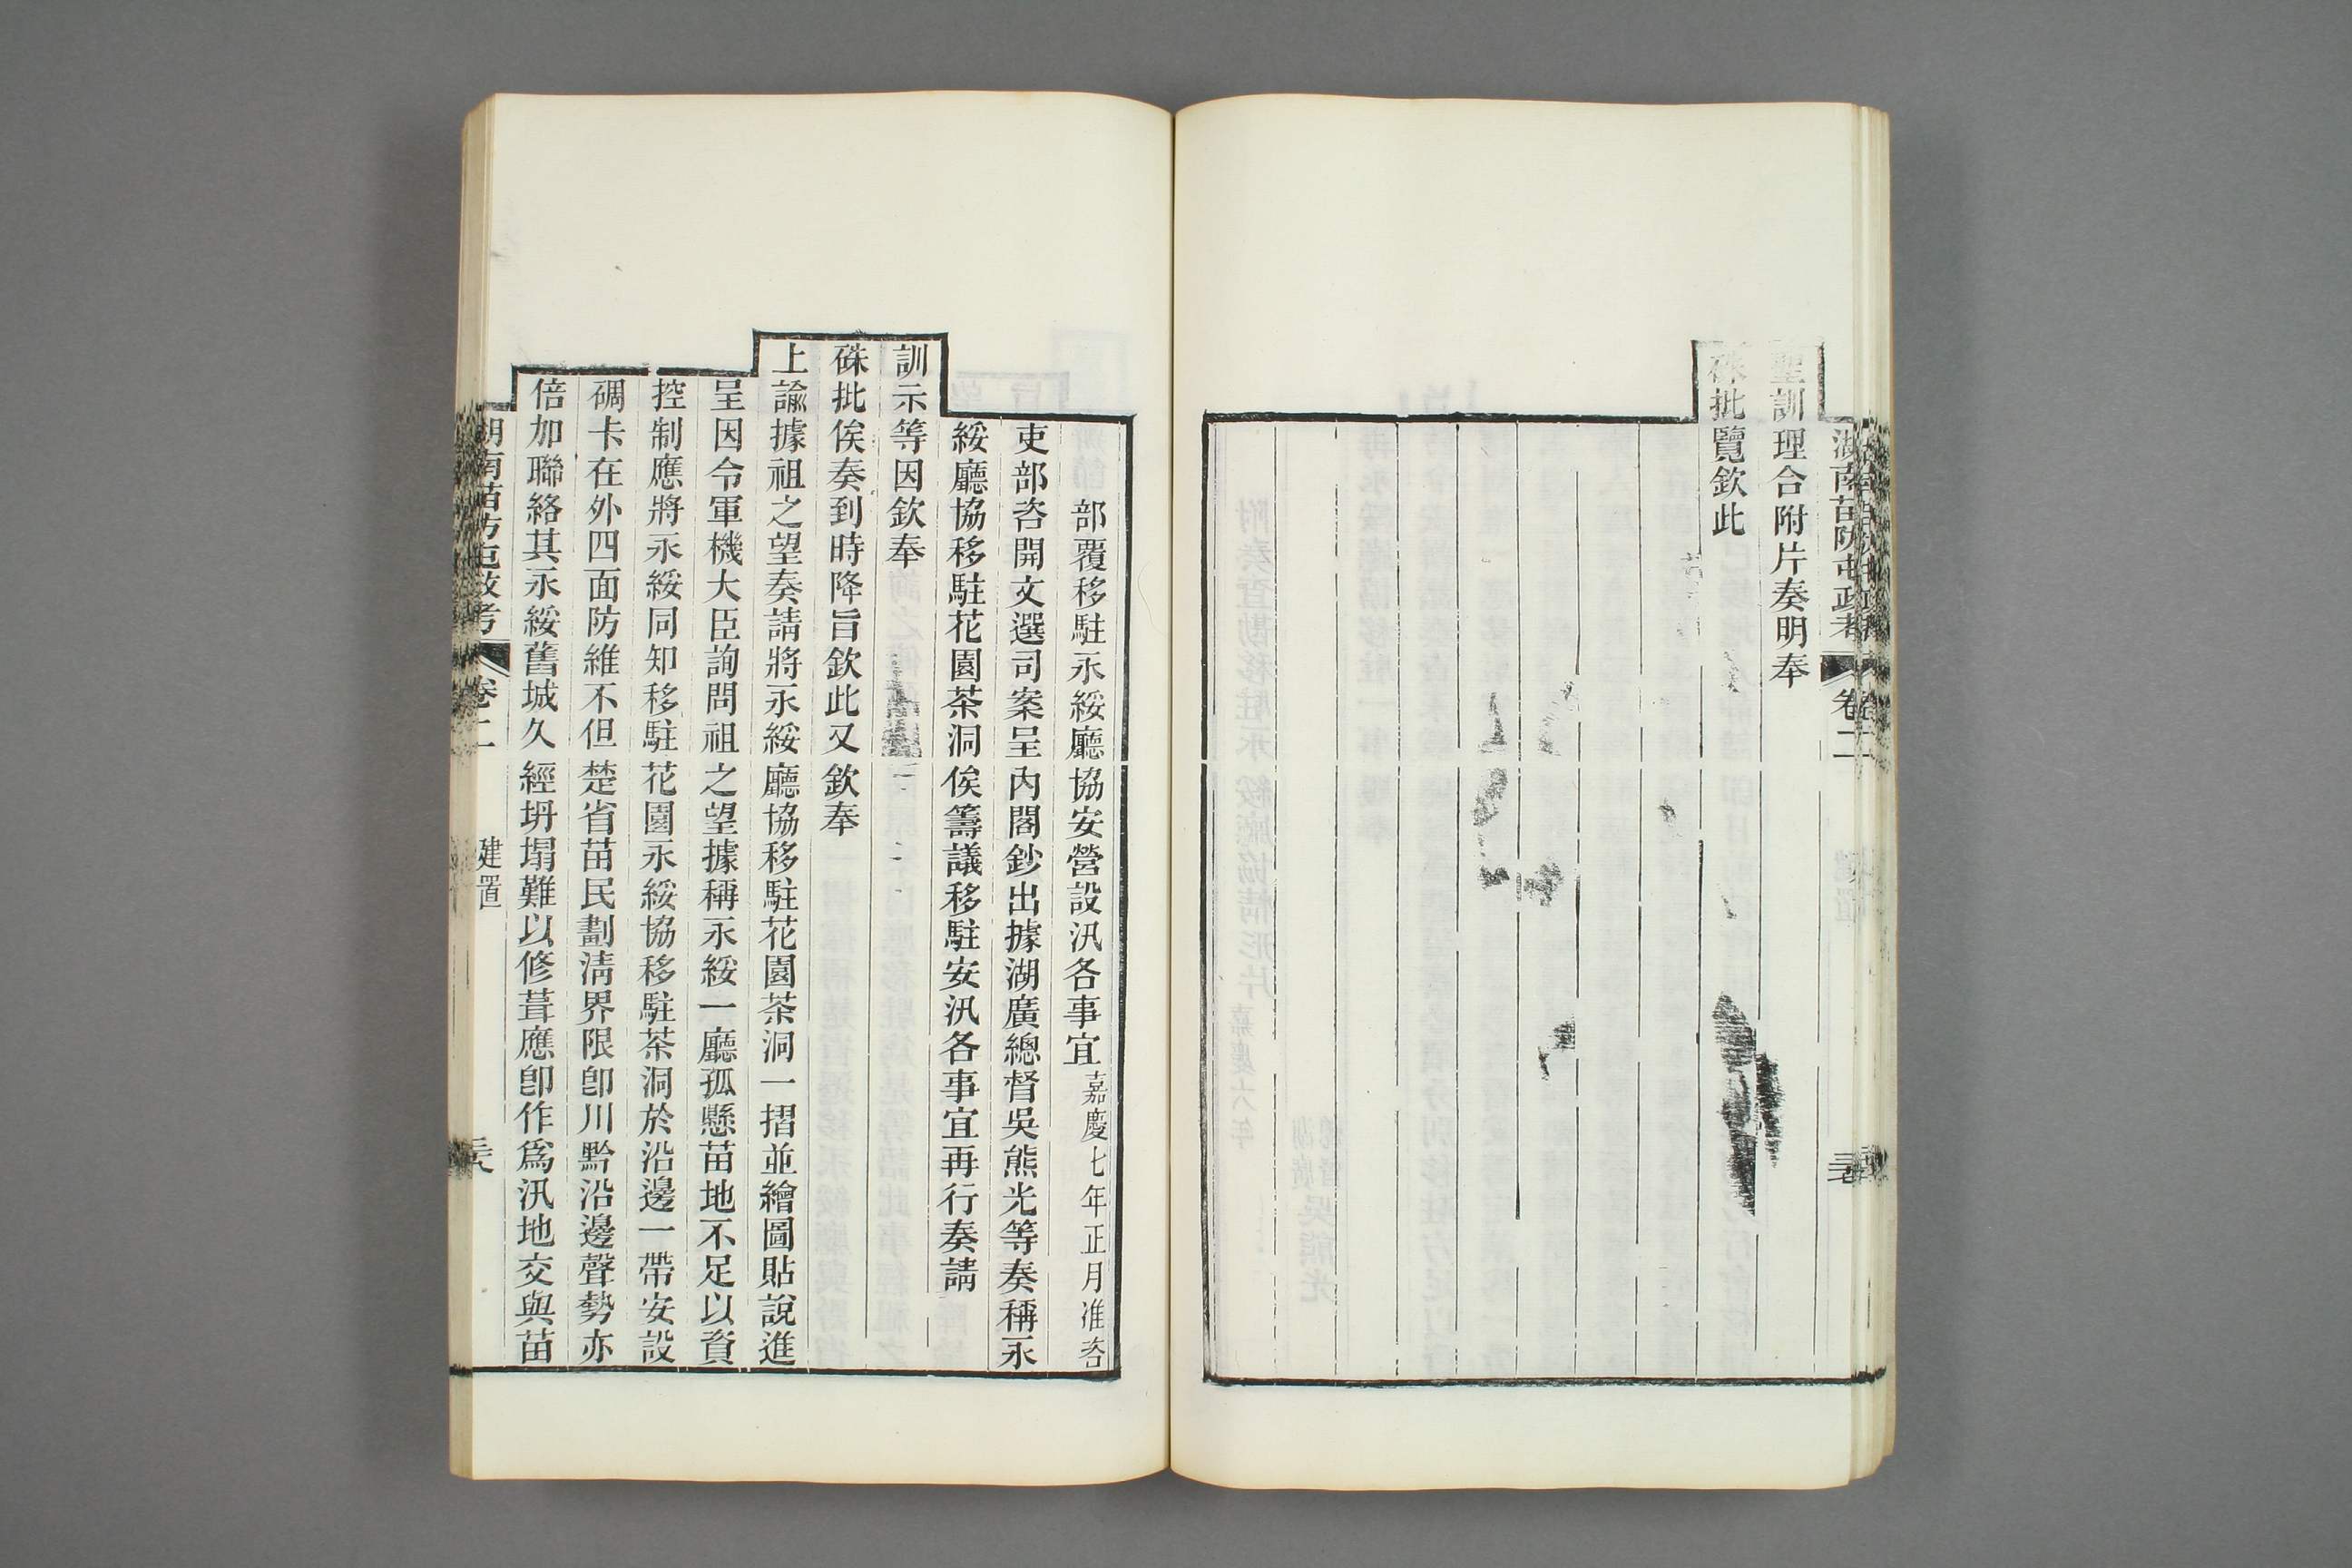 湖南苗防屯政考 卷二
聖訓理合附片奏明奉
硃批覽欽此
部覆移駐永綏廳協安營設汛各事宜嘉慶七年正月准咨
吏部咨開文選司案呈內閣鈔出據湖廣總督吳熊光等奏稱永
綏廳協移駐花園茶洞俟籌議移駐安汛各事宜再行奏請
訓示等因欽奉
硃批俟奏到時降旨欽此又欽奉
上諭據祖之望奏請將永綏廳協移駐花園茶洞一摺並繪圖貼說進
呈因令軍機大臣詢問祖之望據稱永綏一廳孤懸苗地不足以資
控制應將永綏同知移駐花園永綏協移駐茶洞於沿邊一帶安設
碉卡在外四面防維不但楚省苗民劃清界限卽川黔沿邊聲勢亦
倍加聯絡其永綏舊城久經坍塌難以修葺應卽作爲汛地交與苗
湖南苗防屯政考 卷二 建置 三六